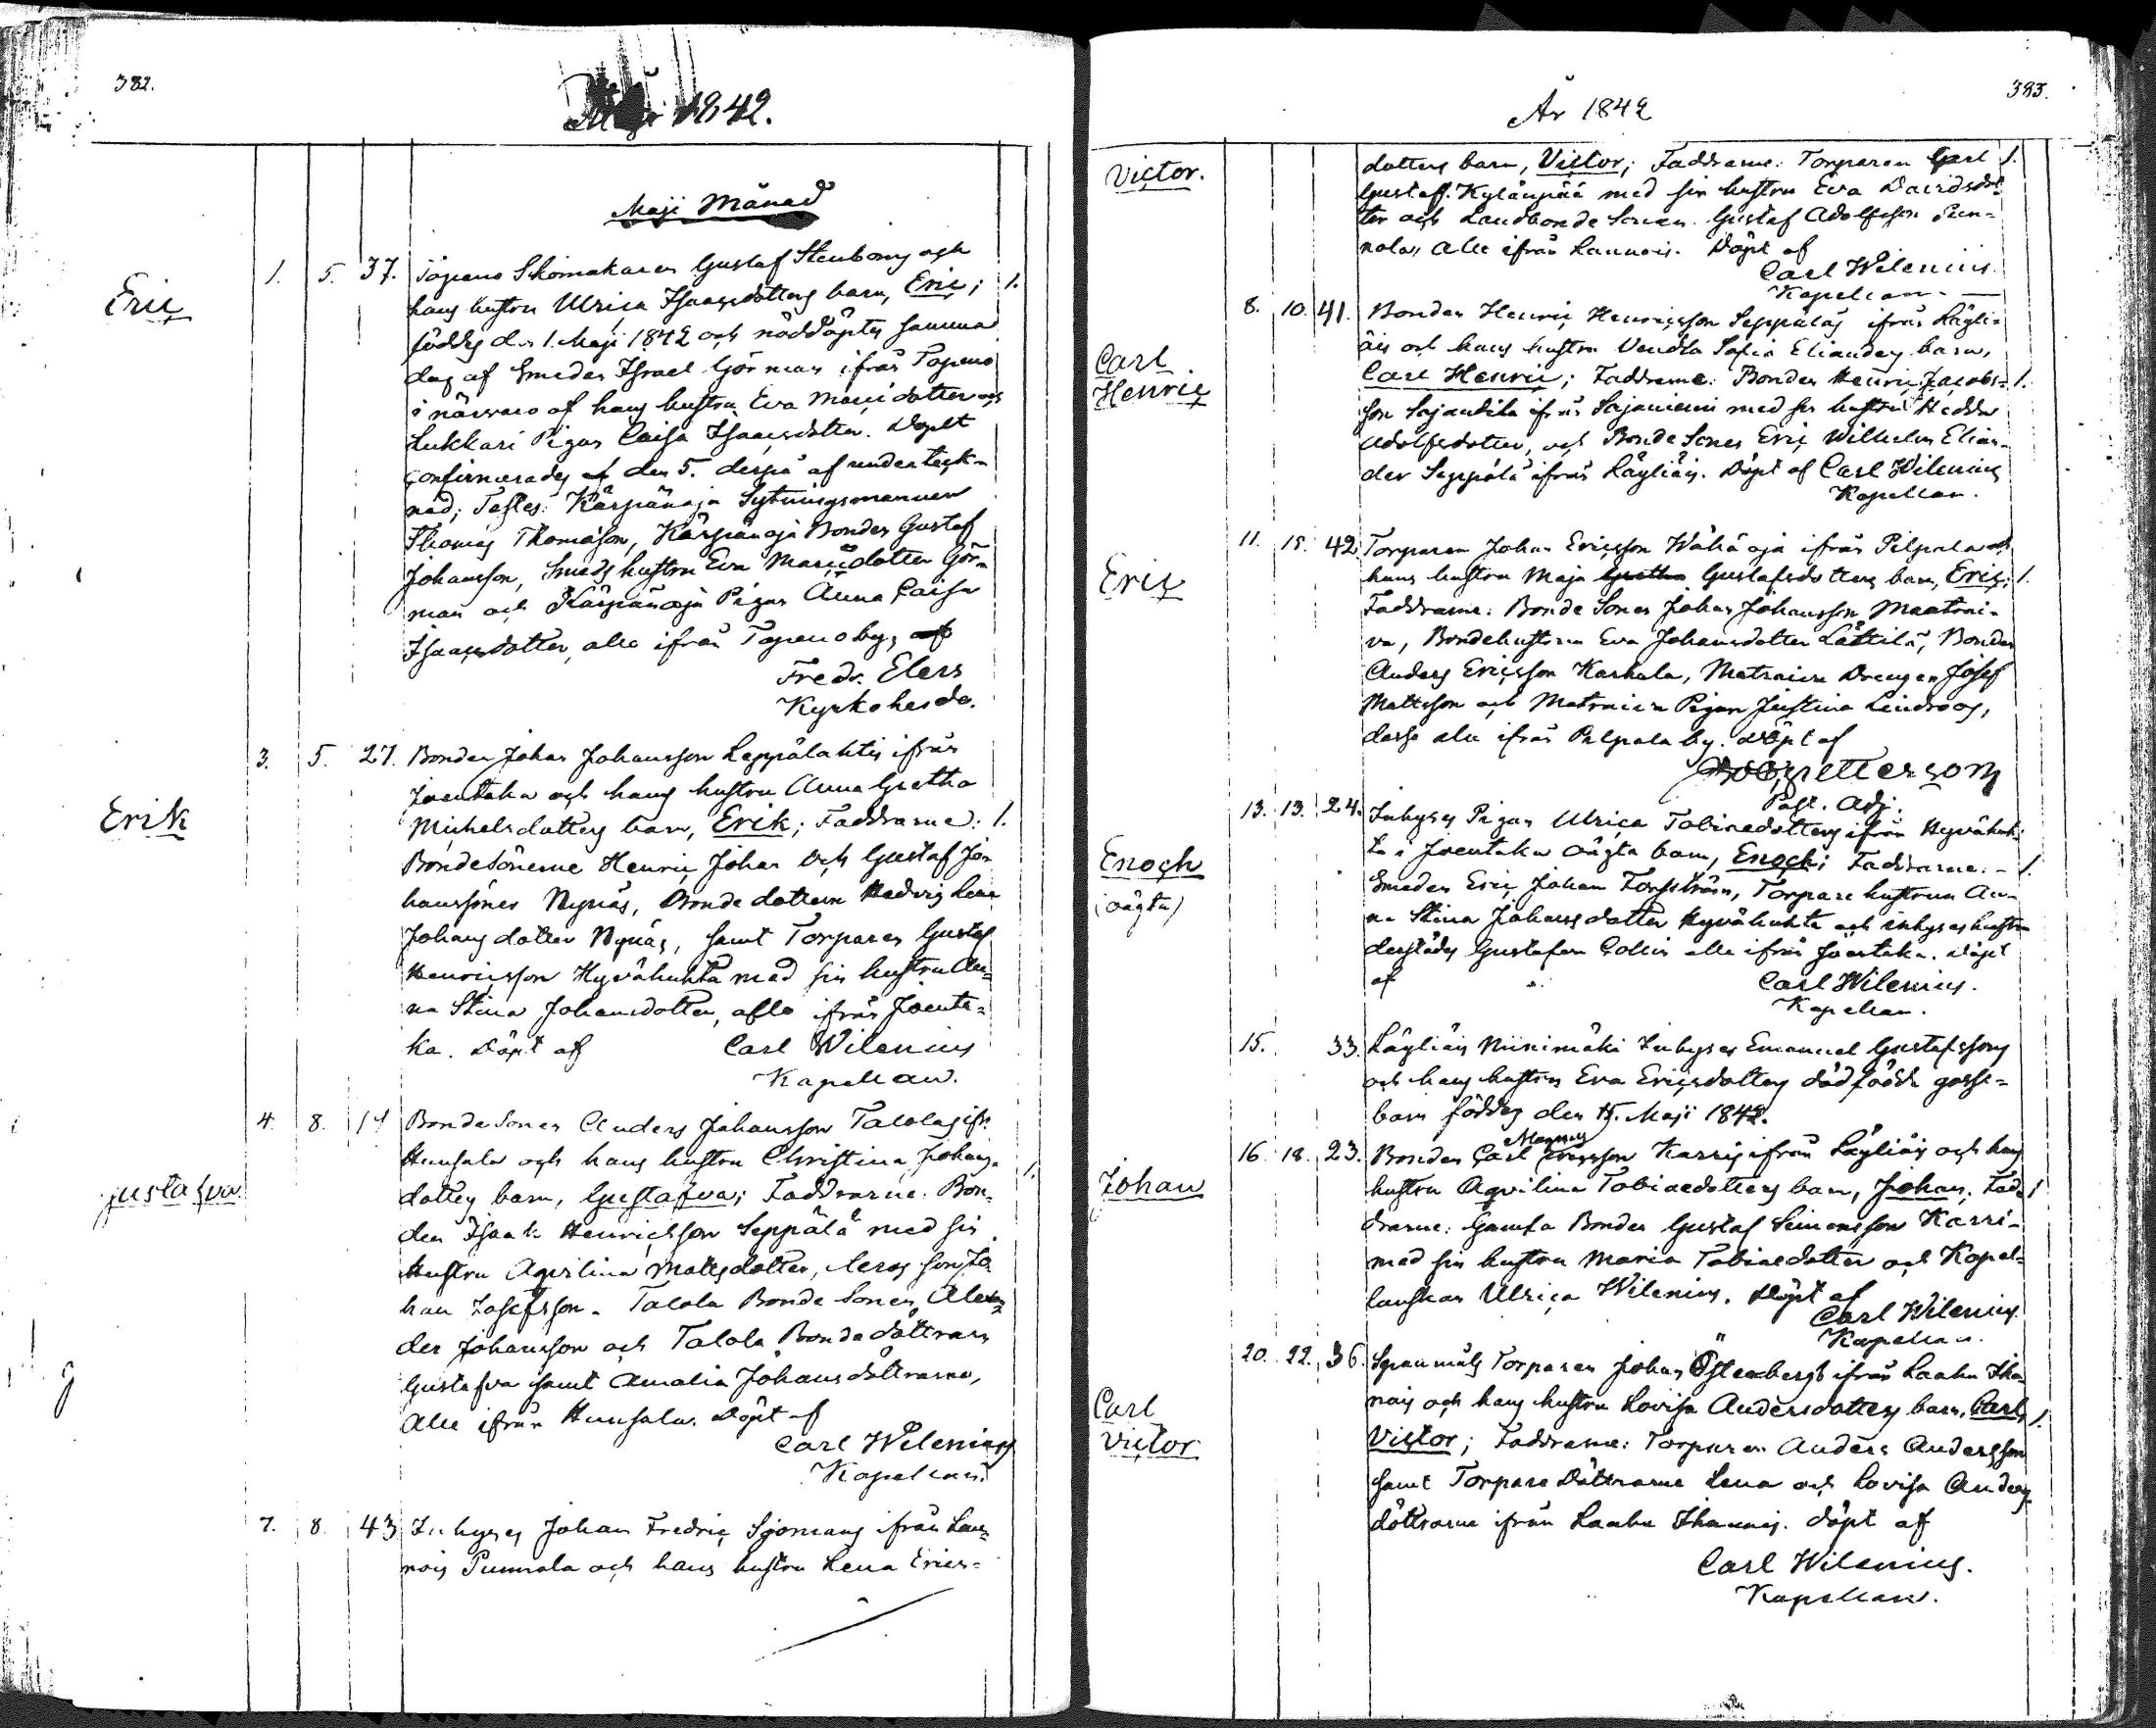 382.
År 1842.
Maji Månad
Eric
1. 5. 37. Topeno Skomakaren Gustaf Stenbomy och
hans hustru Ulrica Isaacsdotters barn, Eric; 1.
föddes den 1. Maji 1842 och nöddöptes samma
dag af Smeden Israel Görman ifrån Topeno
i närvaro af hans hustru Eva Maridotter och
Lukkari Pigan Caisa Isaacsdotter. Dopet
confirmerades af den 5. derpå af underteck-
nad; Testes: Kärpänoja Sytningsmannen
Thomas Thomasson, Kärpänoja Bonden Gustaf
Johansson, Smeds hustru Eva Maridotter Gör-
man och Kärpänoja Pigan Anna Caisa
Isaacsdotter, alla ifrån Topeno by, af
Fredr. Elers
Kyrkoherde.
Erik
3. 5. 27. Bonden Johan Johansson Leppälahtis ifrån
Joentaka och hans hustru Anna Gretha
Michelsdotters barn, Erik; Faddrarne: 1.
Bondesönerne Henric Johan och Gustaf Jo-
hanssöner Nynäs, Bonde dottern Hedvig Lena
Johans dotter Nynäs, samt Torparen Gustaf
Henricsson Hyvähuhta med sin hustru An-
na Stina Johansdotter, alla ifrån Joenta-
ka. Döpt af Carl Wilenius
Kapellan.
Gustafva
4. 8. 19 Bonde Sonen Anders Johansson Talolas ifr.
Hunsala och hans hustru Christina Johans-
dotters barn, Gustafva; Faddrarne: Bon- 1.
den Isaak Henricsson Seppälä med sin
hustru Aqvilina Matsdotter, deras son Jo-
han Josefsson. Talola Bonde Sonen Alexan-
der Johansson och Talola Bonde döttrarn
Gustafva samt Amalia Johansdöttrarne,
Alle ifrån Hunsala. Döpt af
Carl Wilenius
Kapellan.
7. 8. 43 Inhyses Johan Fredric Sjömans ifrån Lau-
nois Punnola och hans hustru Lena Erics-
383.
År 1842
Victor.
dotters barn, Victor; Faddrarne: Torparen Carl 1.
Gustaf Kylänpää med sin hustru Eva Davidsdot-
ter och Landbonde Sonen Gustaf Adolfsson Pun-
nola, Alle ifrån Launois. Döpt af
Carl Wilenius
Kapellan.
Carl
Henric
8. 10. 41. Bonden Henric Henricsson Seppäläs ifrån Lägli-
äis och hans hustru Vendla Sofia Elianders barn,
Carl Henric; Faddrarne: Bonden Henric Jacobs- 1.
son Sajantila ifrån Sajaniemi med sin hustru Hedda
Adolfsdotter, och Bonde Sonen Eric Wilhelm Elian-
der Seppälä ifrån Lägliäis. Döpt af Carl Wilenius
Kapellan.
Eric
11. 15. 42 Torparen Johan Ericsson Wähäoja ifrån Pilpala och
hans hustru Maja Gretha Gustafsdotters barn, Eric; 1.
Faddrarne: Bonde Sonen Johan Johansson Maatoni-
va, Bondehustrun Eva Johansdotter Lättilä, Bonden
Anders Ericsson Karhula, Drengen Josef
Mattsson och Pigan Justina Lindroos,
dessa alla ifrån Pilpala by. Döpt af
Petterson
Past. Adj.
Enoch
(oägta)
13. 13. 24. Inhyses Pigan Ulrica Tobiaedotters ifrån Hyvähuh-
ta i Joentaka oägta barn, Enoch; Faddrarne: 1.
Smeden Eric Johan Forsström, Torpare hustrun An-
na Stina Johansdotter Hyvähuhta och inhyses hustru
derstädes Gustafva Collin alla ifrån Joentaka. Döpt
af Carl Wilenius.
Kapellan.
15. 33. Lägliäis Niinimäki Inhyses Emanuel Gustafssons
och hans hustrus Eva Ericsdotters dödfödde gosse-
barn föddes den 15. Maji 1842.
Johan
16. 18. 23. Bonden Carl Magnus Ericsson Karris ifrån Lägliäis och hans
hustru Aqvilina Tobiaedotters barn, Johan; Fad- 1
drarne: Gamla Bonden Gustaf Simonsson Karri-
med sin hustru Maria Tobiaedotter och Kapel-
lanskan Ulrica Wilenius. Döpt af
Carl Wilenius.
Kapellan.
Carl
Victor
20. 22. 36. Spanmåls Torparen Johan Östenbergs ifrån Laaha Tha-
nois och hans hustru Lovisa Andersdotters barn, Carl 1.
Victor; Faddrarne: Torparen Anders Andersson
samt Torpare Döttrarne Lena och Lovisa Anders-
döttrarne ifrån Laaha Thanois. döpt af
Carl Wilenius.
Kapellan.